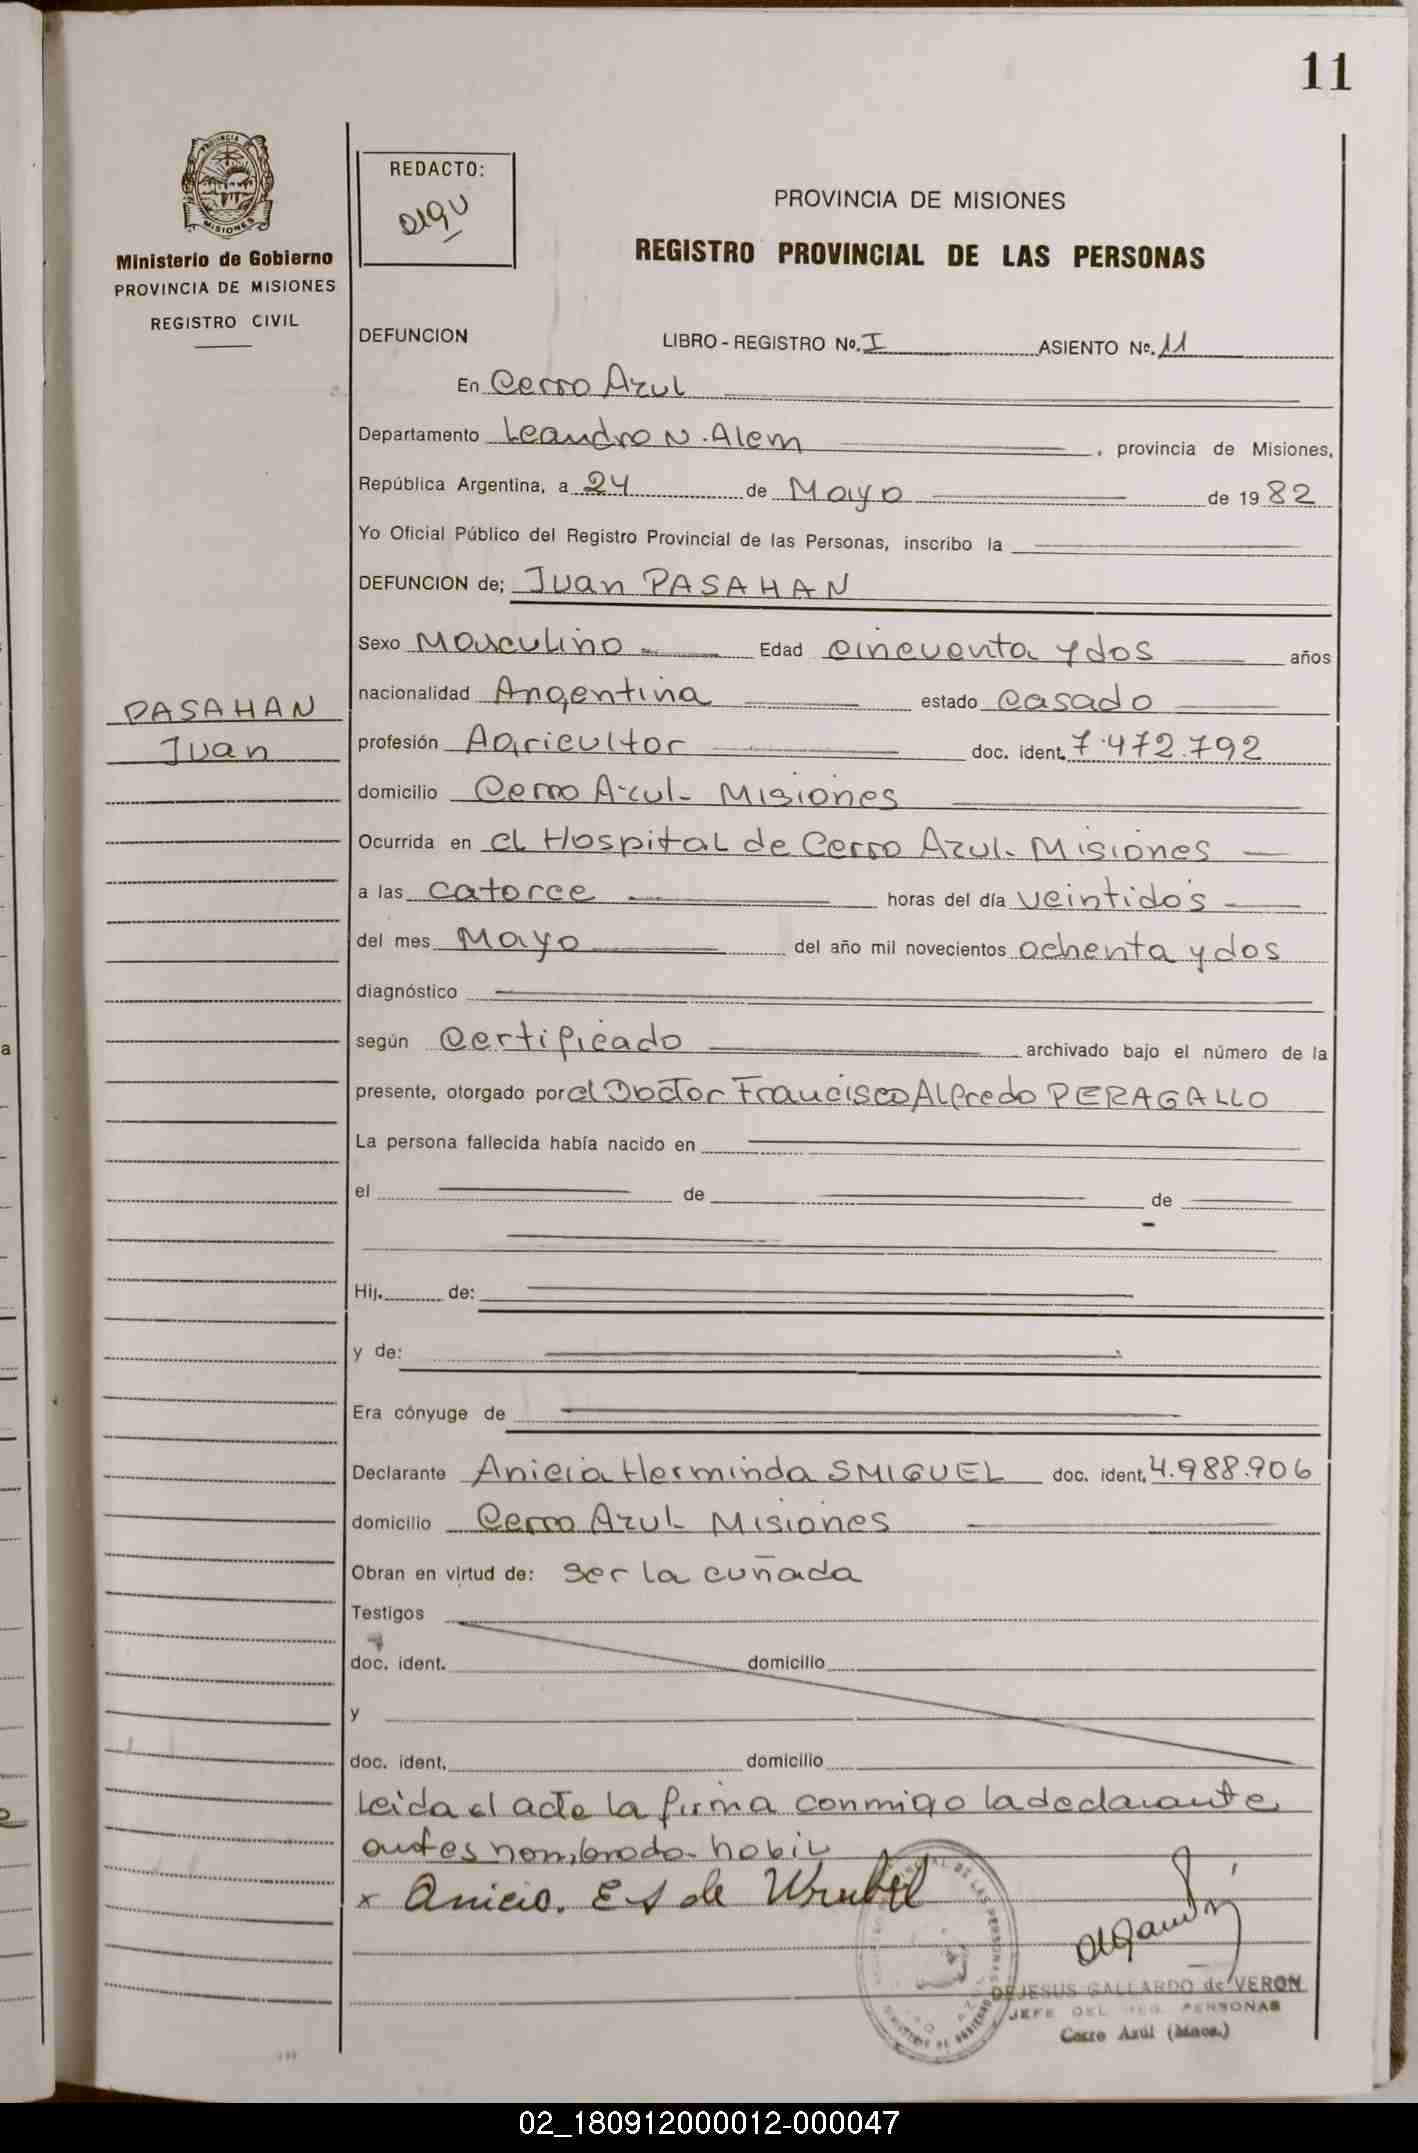 11
Ministerio de Gobierno
PROVINCIA DE MISIONES
REGISTRO CIVIL
REDACTO:
PROVINCIA DE MISIONES
REGISTRO PROVINCIAL DE LAS PERSONAS
DEFUNCION LIBRO - REGISTRO No. I ASIENTO No. 11
En Cerro Azul
Departamento Leandro N. Alem, provincia de Misiones,
República Argentina, a 24 de Mayo de 1982
Yo Oficial Público del Registro Provincial de las Personas, inscribo la
DEFUNCION de; Juan PASAHAN
Sexo Masculino Edad cincuenta y dos años
PASAHAN
Juan
nacionalidad Argentina estado casado
profesión Agricultor doc. ident. 7.472.792
domicilio Cerro Azul - Misiones
Ocurrida en el Hospital de Cerro Azul - Misiones
a las catorce horas del día veintidós
del mes Mayo del año mil novecientos ochenta y dos
diagnóstico
según certificado archivado bajo el número de la
presente, otorgado por el Doctor Francisco Alfredo PERAGALLO
La persona fallecida había nacido en
el de de
Hij. de:
y de:
Era cónyuge de
Declarante Anicia Herminda SMIGUEL doc. ident. 4.988.906
domicilio Cerro Azul Misiones
Obran en virtud de: ser la cuñada
Testigos
doc. ident. domicilio
y
doc. ident. domicilio
Leida el acta la firma conmigo la declarante
antes nombrada habil
x Anicia. E S de
DEJESUS GALLARDO de VERON
JEFE DEL REG. PERSONAS
Cerro Azul (Mnes.)
02_180912000012-000047